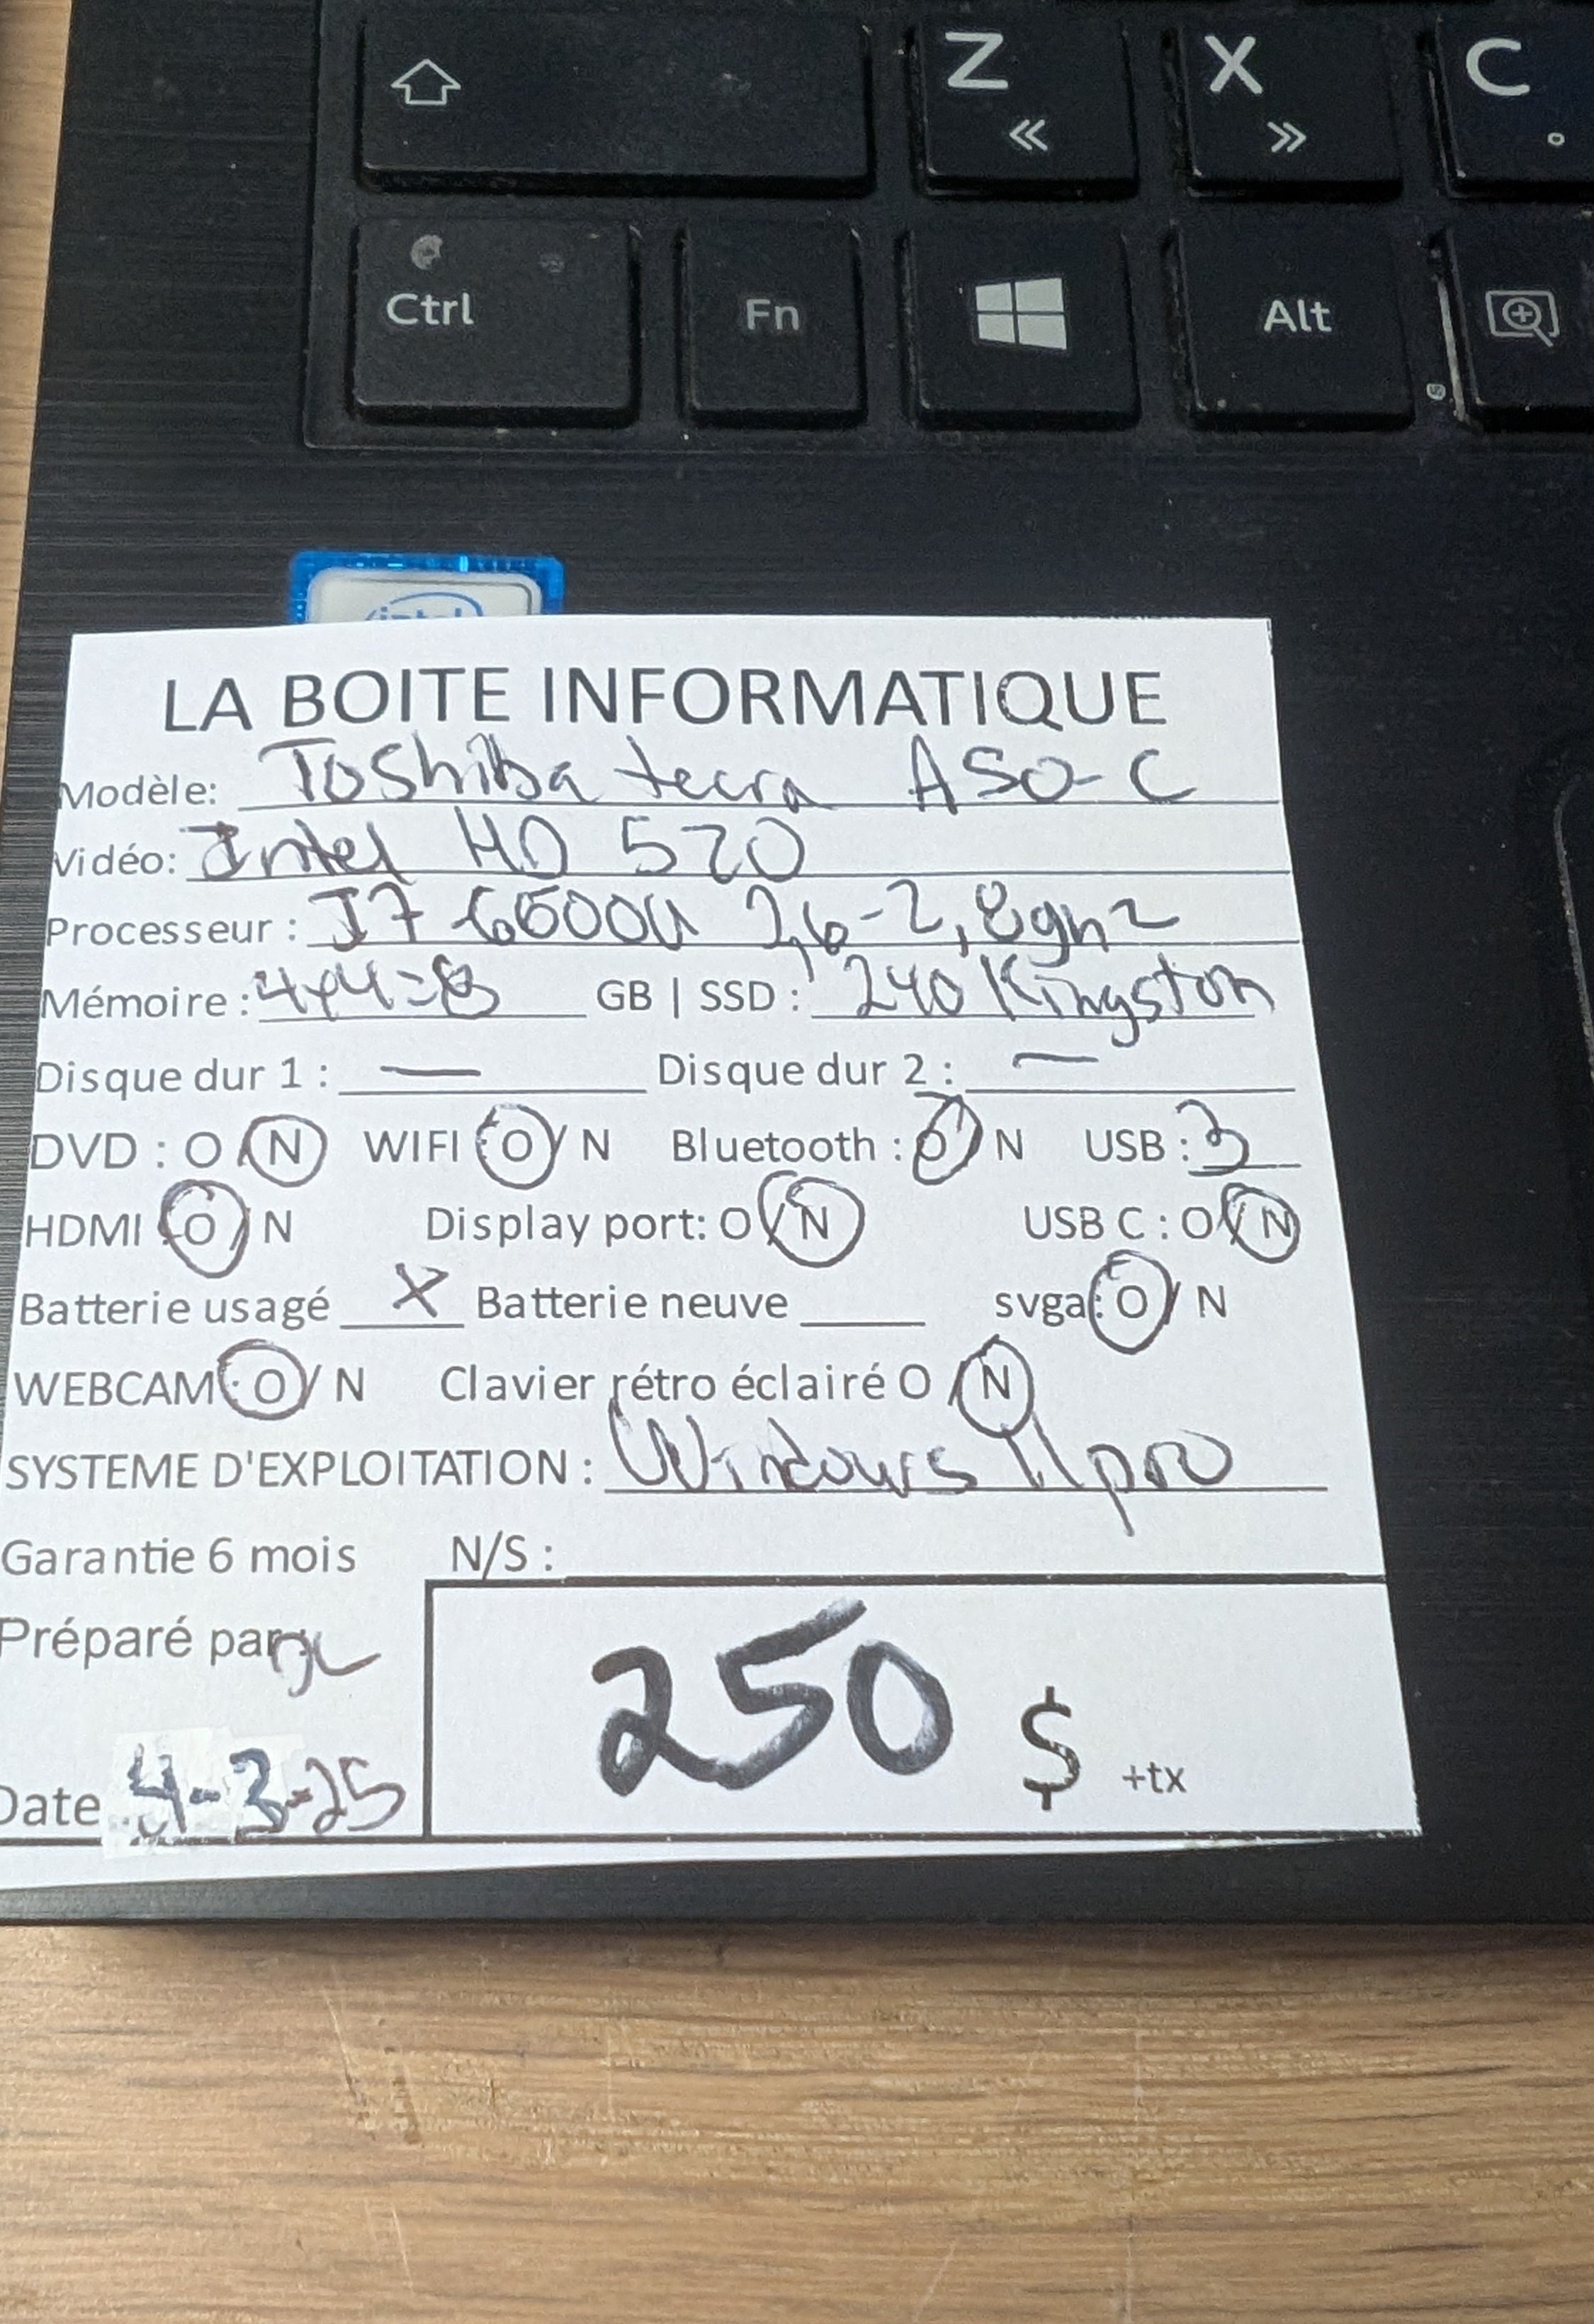 Z X C
« » °
Ctrl Fn Alt
intel
LA BOITE INFORMATIQUE
Modèle: Toshiba tecra A50-C
Vidéo: Intel HD 520
Processeur : I7 6500U 2,6-2,8ghz
Mémoire : 4+4=8 GB | SSD : 240 Kingston
Disque dur 1 : — Disque dur 2 : —
DVD : O / N WIFI : O / N Bluetooth : O / N USB : 3
HDMI : O / N Display port: O / N USB C : O / N
Batterie usagé X Batterie neuve ____ svga : O / N
WEBCAM : O / N Clavier rétro éclairé O / N
SYSTEME D'EXPLOITATION : Windows 11 pro
Garantie 6 mois N/S :
Préparé par
250 $ +tx
Date 4-3-25